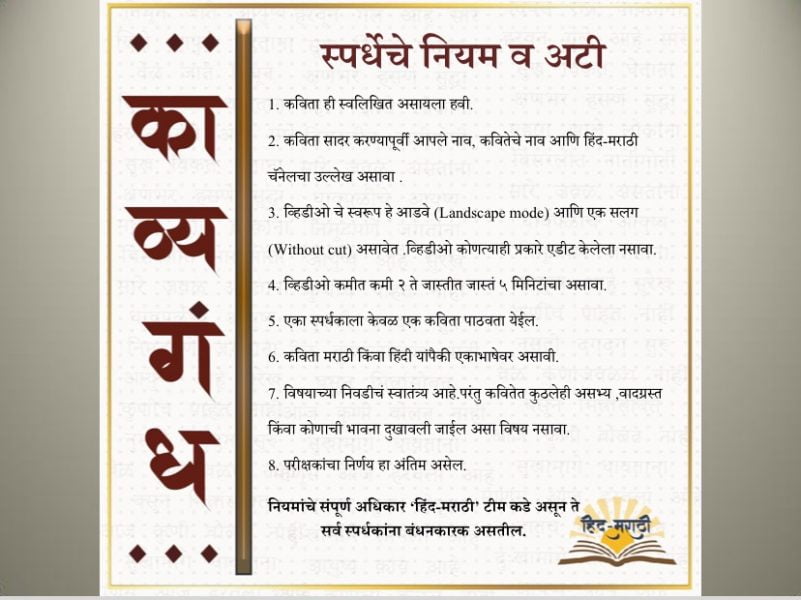 का
व्य
गं
ध
स्पर्धेचे नियम व अटी
1. कविता ही स्वलिखित असायला हवी.
2. कविता सादर करण्यापूर्वी आपले नाव, कवितेचे नाव आणि हिंद-मराठी
चॅनेलचा उल्लेख असावा .
3. व्हिडीओ चे स्वरूप हे आडवे (Landscape mode) आणि एक सलग
(Without cut) असावेत .व्हिडीओ कोणत्याही प्रकारे एडीट केलेला नसावा.
4. व्हिडीओ कमीत कमी २ ते जास्तीत जास्तं ५ मिनिटांचा असावा.
5. एका स्पर्धकाला केवळ एक कविता पाठवता येईल.
6. कविता मराठी किंवा हिंदी यांपैकी एकाभाषेवर असावी.
7. विषयाच्या निवडीचं स्वातंत्र्य आहे.परंतु कवितेत कुठलेही असभ्य ,वादग्रस्त
किंवा कोणाची भावना दुखावली जाईल असा विषय नसावा.
8. परीक्षकांचा निर्णय हा अंतिम असेल.
नियमांचे संपूर्ण अधिकार ‘हिंद-मराठी’ टीम कडे असून ते
सर्व स्पर्धकांना बंधनकारक असतील.
हिंद-मराठी